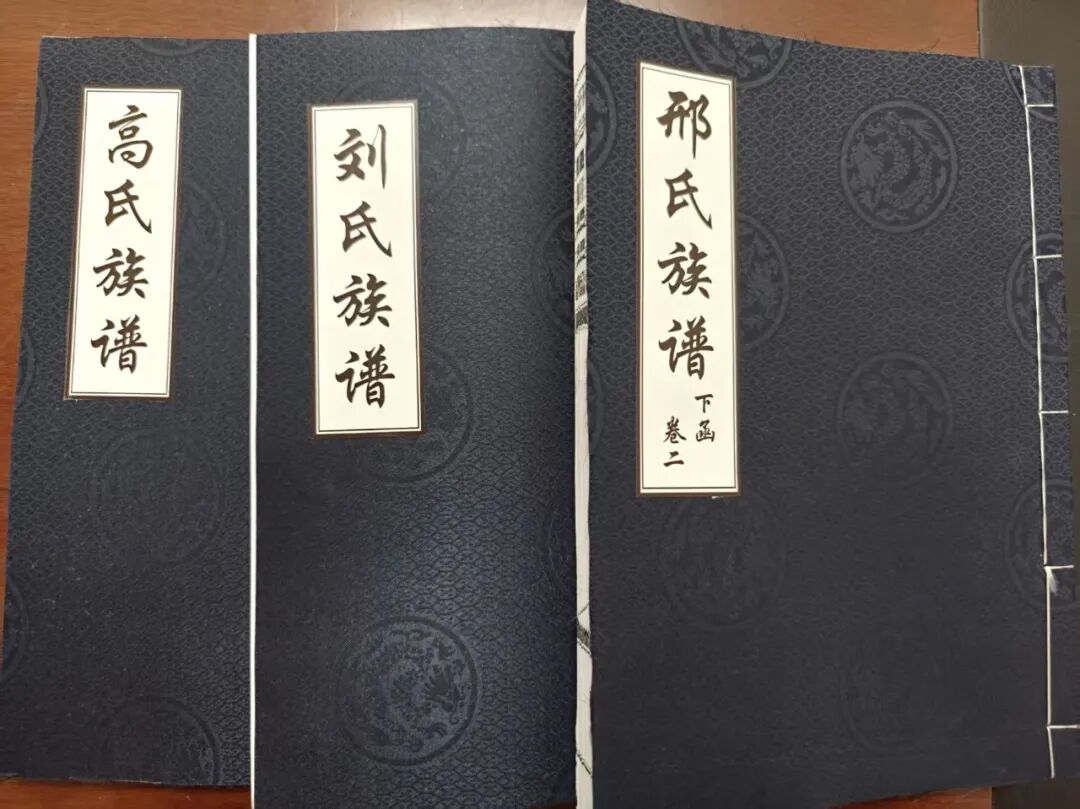 高氏族谱
刘氏族谱
邢氏族谱
下函
卷二